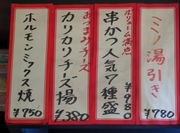 ミノ湯引き
¥780
ボリューム満点
串かつ人気7種盛
¥980
おつまみ
カリカリチーズ揚
¥380
ホルモンミックス焼
¥750